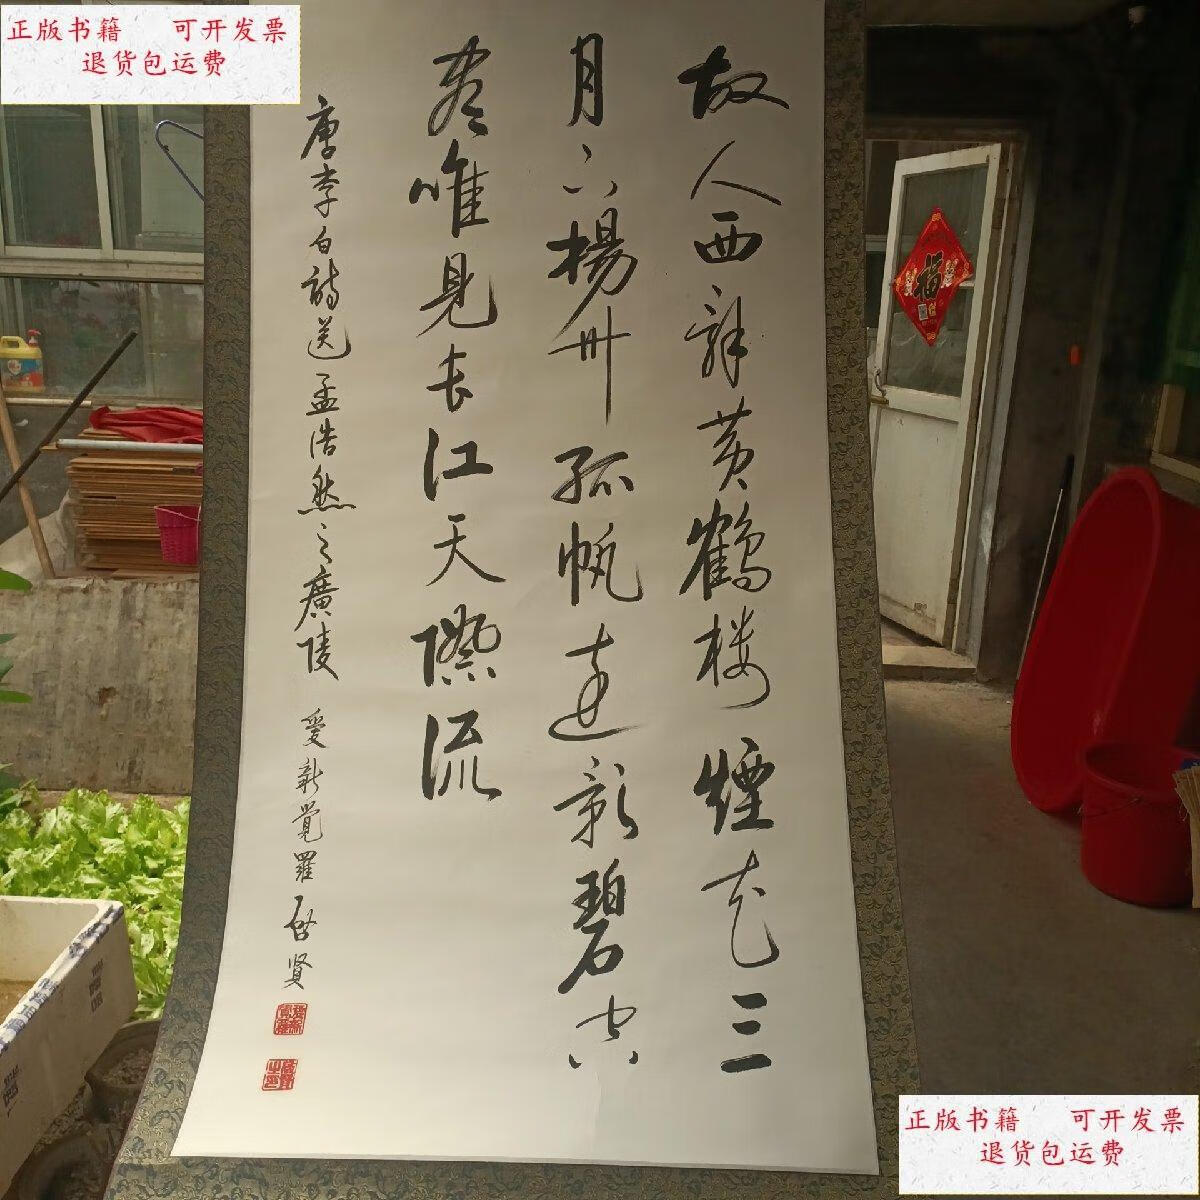 正版书籍 可开发票
退货包运费
故人西辞黄鹤楼煙花三
月下揚州孤帆远影碧空
尽唯見长江天際流
唐李白詩送孟浩然之廣陵 爱新覚羅启贤
福
正版书籍 可开发票
退货包运费